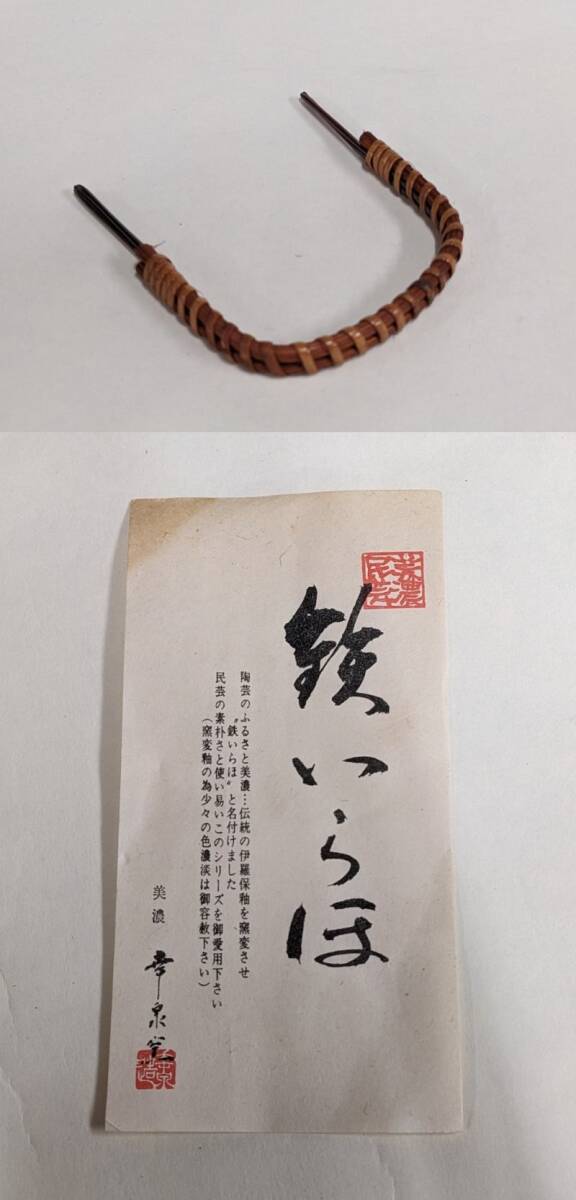 美濃民芸
鉄いらほ
陶芸のふるさと美濃…伝統の伊羅保釉を窯変させ
〝鉄いらほ〟と名付けました
民芸の素朴さと使い易いこのシリーズを御愛用下さい
(窯変釉の為少々の色濃淡は御容赦下さい)
美濃
幸泉窯